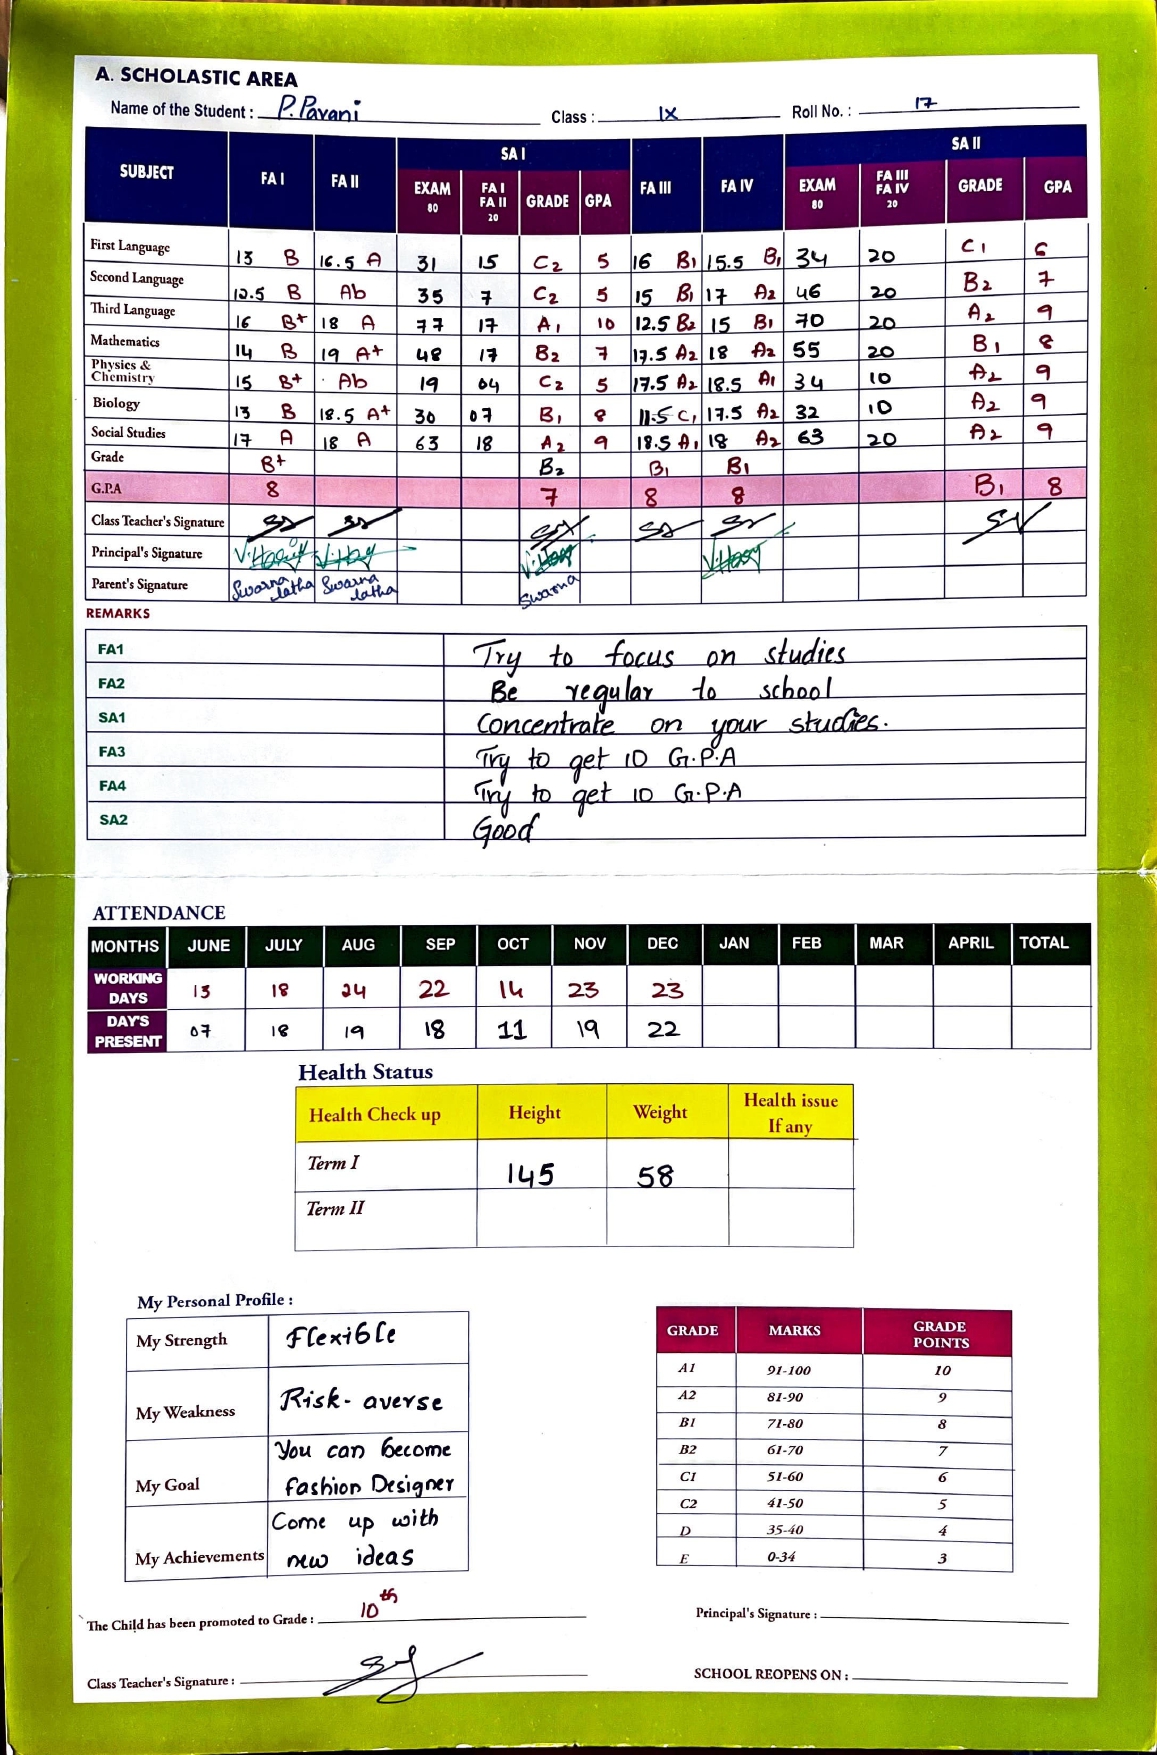 A. SCHOLASTIC AREA
Name of the Student : P. Pavani Class : IX Roll No. : 17
SUBJECT FA I FA II SA I FA III FA IV SA II
EXAM 80 FA I FA II 20 GRADE GPA EXAM 80 FA III FA IV 20 GRADE GPA
First Language 13 B 16.5 A 31 15 C2 5 16 B1 15.5 B1 34 20 C1 6
Second Language 12.5 B Ab 35 7 C2 5 15 B1 17 A2 46 20 B2 7
Third Language 16 B+ 18 A 77 17 A1 10 12.5 B2 15 B1 70 20 A2 9
Mathematics 14 B 19 A+ 48 17 B2 7 17.5 A2 18 A2 55 20 B1 8
Physics & Chemistry 15 B+ Ab 19 04 C2 5 17.5 A2 18.5 A1 34 10 A2 9
Biology 13 B 18.5 A+ 30 07 B1 8 11.5 C1 17.5 A2 32 10 A2 9
Social Studies 17 A 18 A 63 18 A2 9 18.5 A1 18 A2 63 20 A2 9
Grade B+ B2 B1 B1
G.P.A 8 7 8 8 B1 8
Class Teacher's Signature
Principal's Signature
Parent's Signature Swarna latha Swarna latha Swarna
REMARKS
FA1 Try to focus on studies
FA2 Be regular to school
SA1 Concentrate on your studies.
FA3 Try to get 10 G.P.A
FA4 Try to get 10 G.P.A
SA2 Good
ATTENDANCE
MONTHS JUNE JULY AUG SEP OCT NOV DEC JAN FEB MAR APRIL TOTAL
WORKING DAYS 13 18 24 22 14 23 23
DAY'S PRESENT 07 18 19 18 11 19 22
Health Status
Health Check up Height Weight Health issue If any
Term I 145 58
Term II
My Personal Profile :
My Strength Flexible
My Weakness Risk-averse
My Goal You can become fashion Designer
My Achievements Come up with new ideas
GRADE MARKS GRADE POINTS
A1 91-100 10
A2 81-90 9
B1 71-80 8
B2 61-70 7
C1 51-60 6
C2 41-50 5
D 35-40 4
E 0-34 3
The Child has been promoted to Grade : 10th
Principal's Signature :
Class Teacher's Signature :
SCHOOL REOPENS ON :